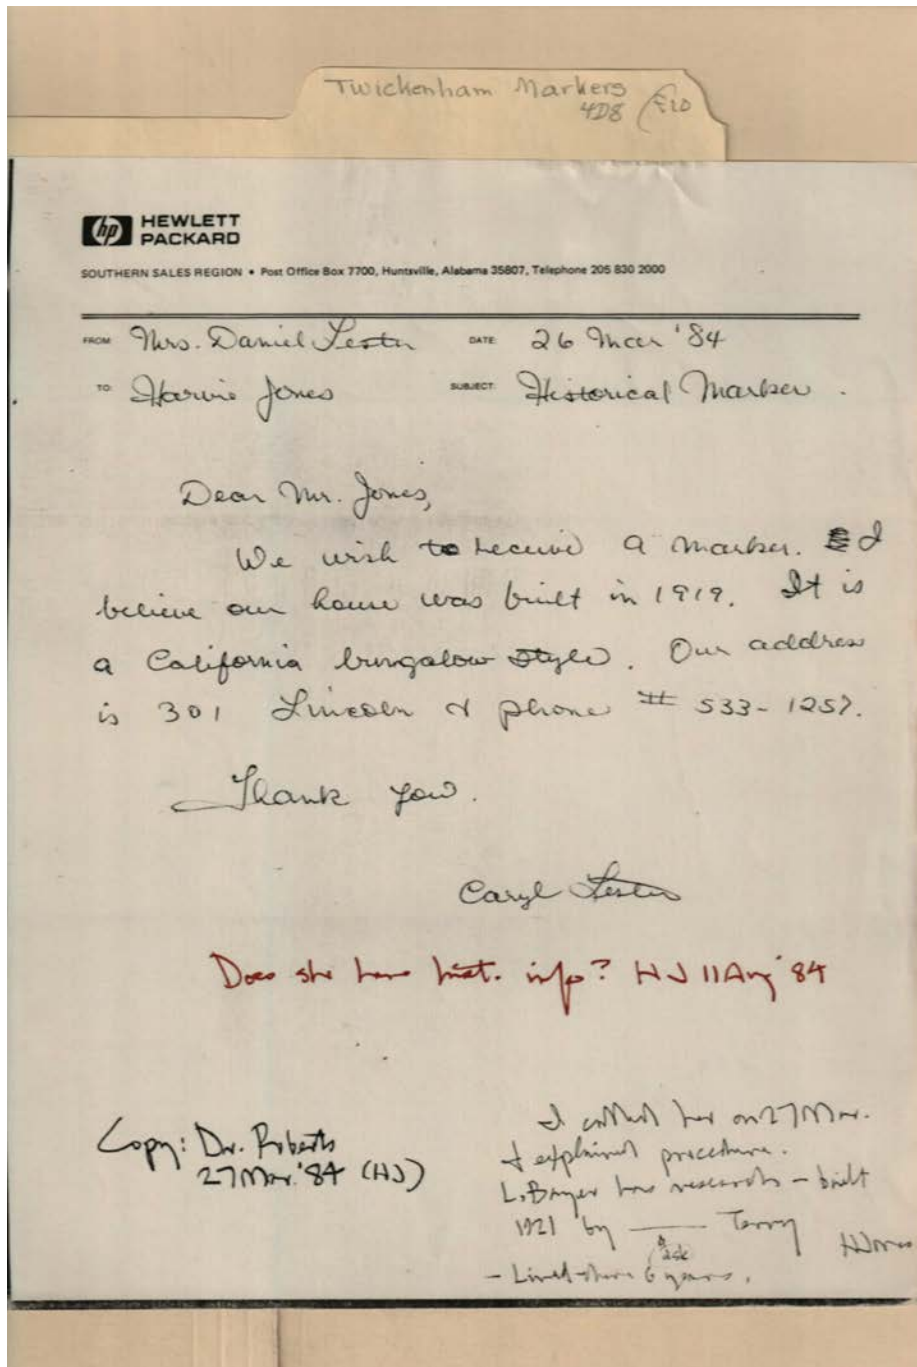 Twickenham Markers
4D8
hp HEWLETT
PACKARD
SOUTHERN SALES REGION • Post Office Box 7700, Huntsville, Alabama 35807, Telephone 205 830 2000
FROM: Mrs. Daniel Lester DATE: 26 Mar '84
TO: Harvie Jones SUBJECT: Historical Marker.
Dear Mr. Jones,
We wish to receive a marker. I
believe our house was built in 1919. It is
a California bungalow style. Our address
is 301 Lincoln & phone # 533-1257.
Thank you.
Caryl Lester
Does she have hist. info? HJ 11 Aug '84
Copy: Dr. Roberts
27 Mar. '84 (HJ)
I called her on 27 Mar.
& explained procedure.
L. Bayer has research - built
1921 by ___ Terry
ask
HJones
- Lived there 6 years.